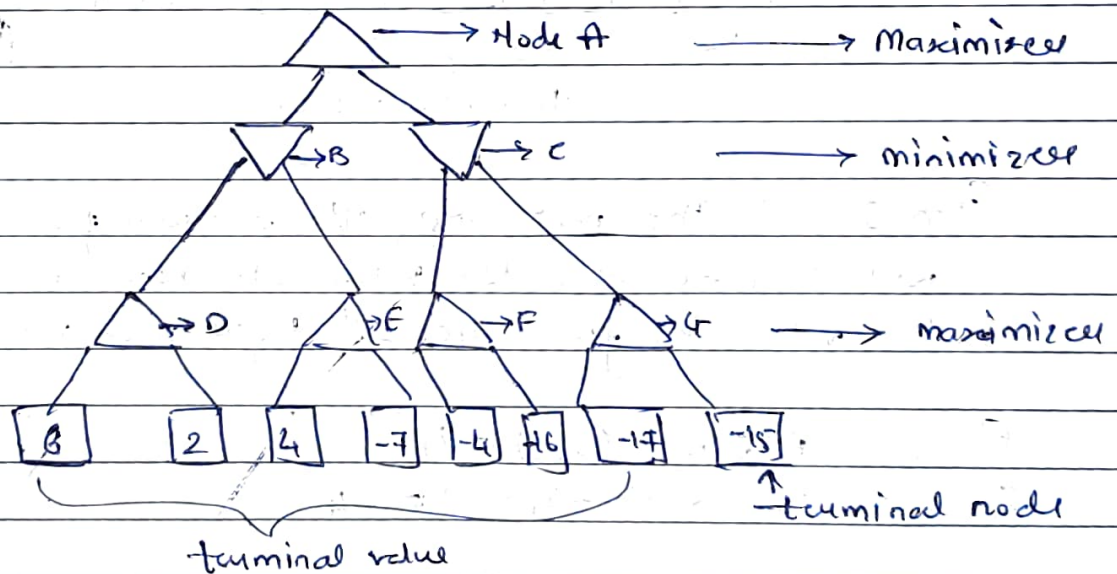 Node A → Maximizer
B C → minimizer
D E F G → maximizer
2 4 -7 -4 -16 -17 -15
terminal node
terminal value